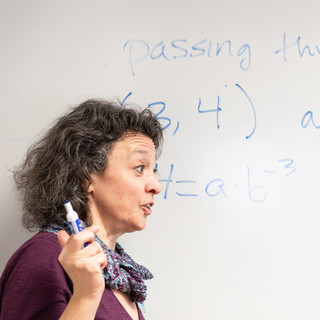 passing thr
(-3, 4) a
4=a·b⁻³